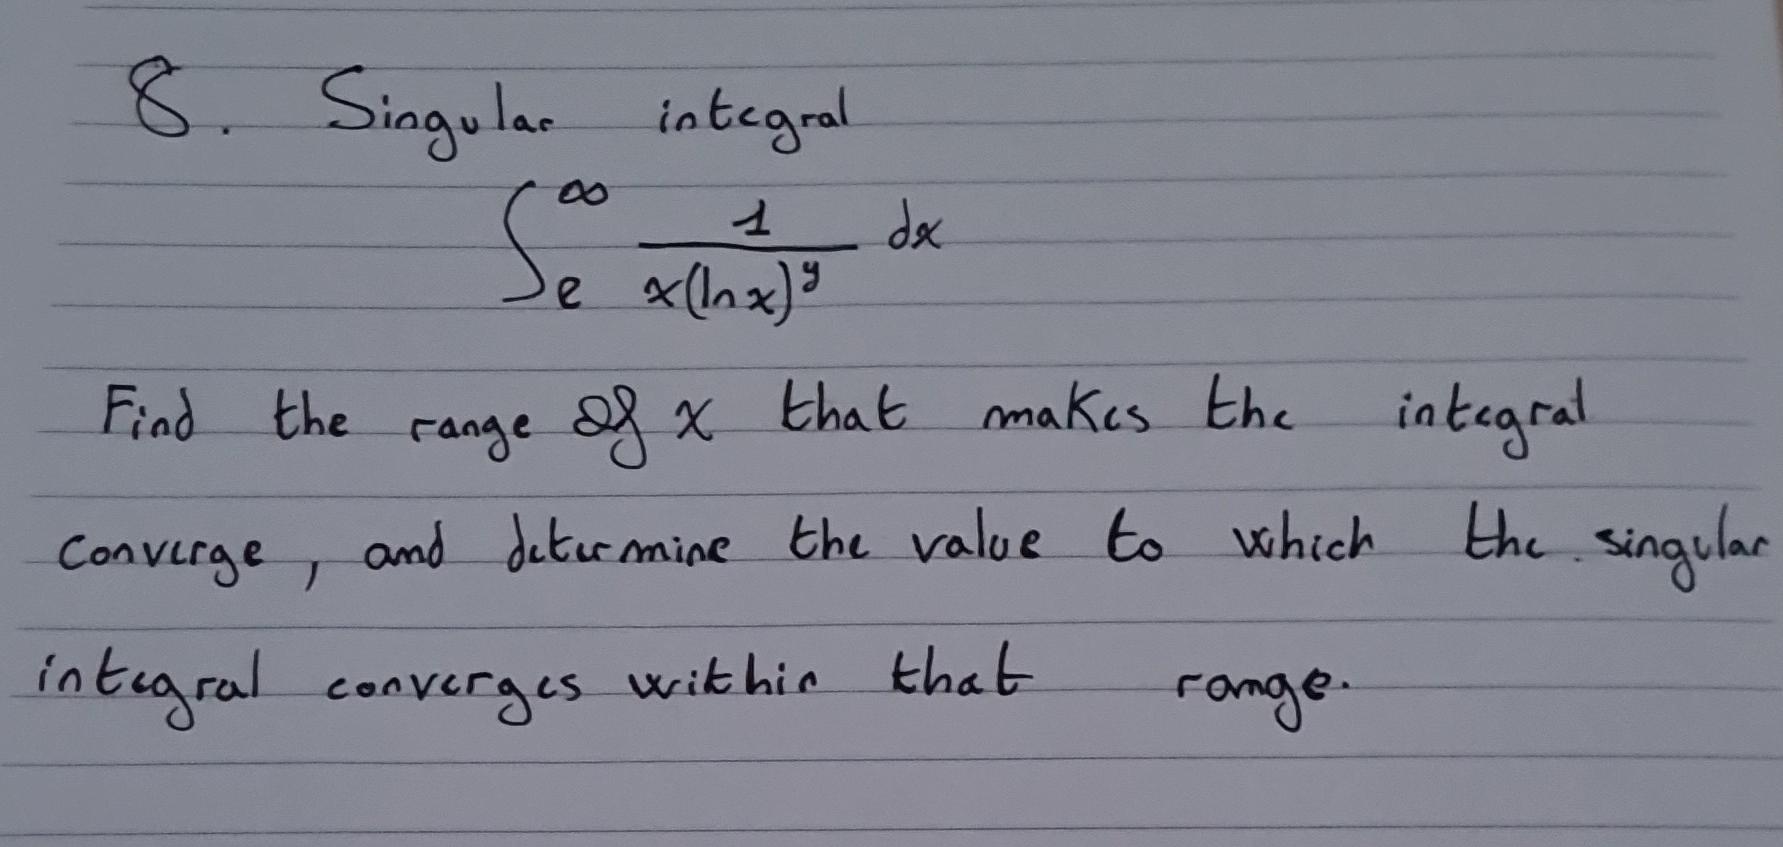 8. Singular integral
∫_e^∞ 1/(x(ln x)^y) dx
Find the range of x that makes the integral
converge, and determine the value to which the singular
integral converges within that range.